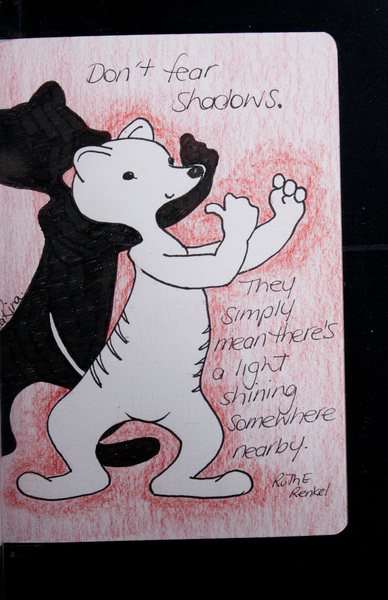 Don't fear
Shadows.
They
Simply
mean there's
a light
shining
Somewhere
nearby.
RuThE
Renkel